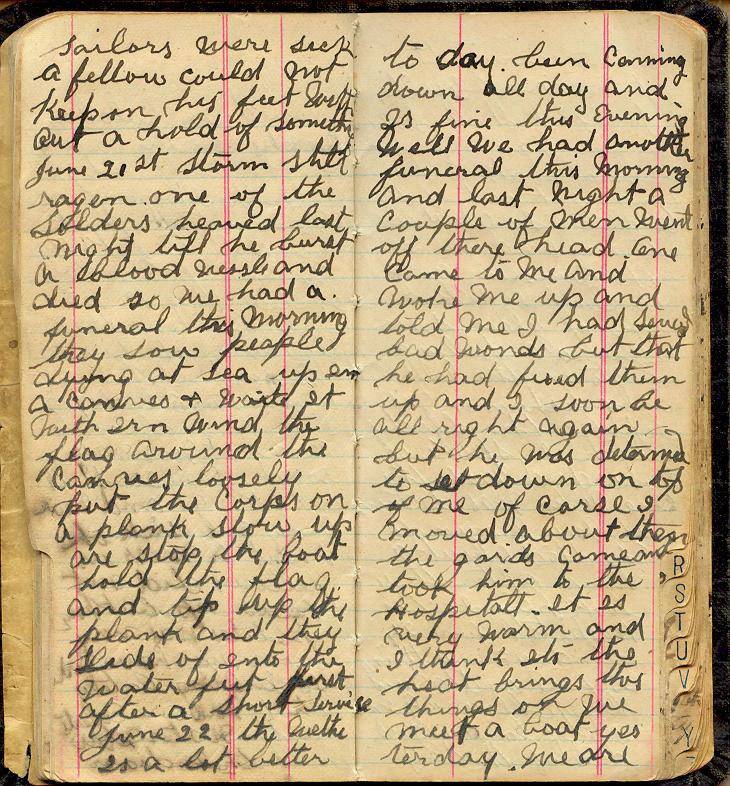 sailors were sick
a fellow could not
keep on his feet with
out a hold of someth
June 21st storm still
ragen. one of the
Solders heaved last
night till he burst
a blood vessle and
died so we had a.
funeral this Morning
they sow people
dying at sea up in
a canves + waite it
with irn wind the
flag around the
canves loosely
put the corps on
a plank slow up
are stop the boat
hold the flag
and tip up the
plank and they
slide of into the
water feet first
after a short servise
June 22 the wethe
is a lot better
to day. been Conning
down all day and
is fine this Evening
Well We had another
funeral this Morning
and last Night a
Couple of Men Went
off there head. one
Came to Me and
Woke Me up and
told Me I had
bad Wonds but that
he had fixed them
up and I soon be
all right again
but he Was determed
to set down on top
of me of carse I
moved about then
the gards Came an
took him to the
Hospitall. it is
very Warm and
I think its the
heat brings this
things on We
meet a boat yes
terday. We are
R
S
T
U
V
X